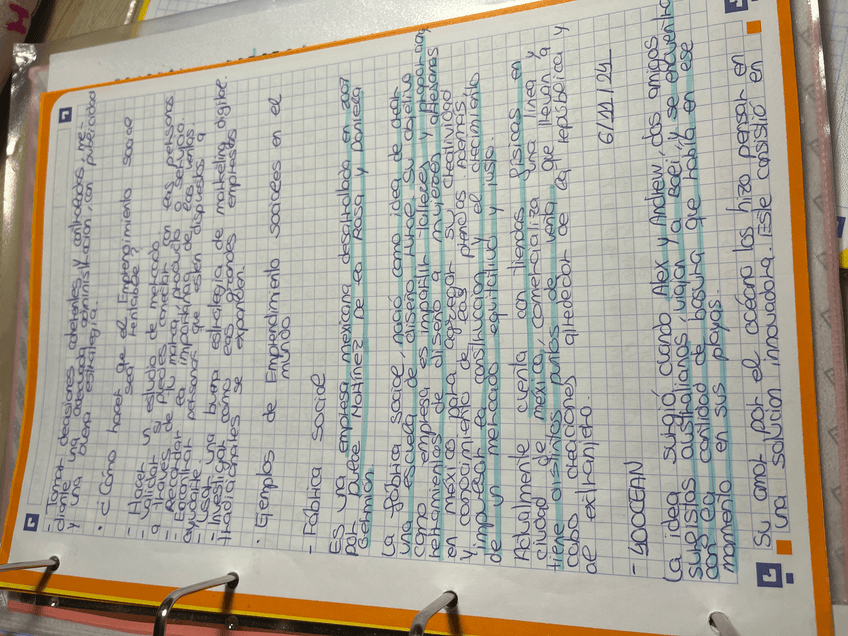 - Tomar decisiones coherentes y controladas, me-
diante una adecuada administración, con
y una buena estrategia.
• ¿Cómo hacer que el Emprendimiento social
sea rentable?
- Hacer un estudio de mercado
- Validar si puedes conectar con las personas
a través de tu marca, producto o servicio
- Recordar la importancia de las ventas
- Encontrar personas que estén dispuestas a
ayudarte.
- Usar una buena estrategia de marketing digital.
- Investigar cómo las grandes empresas
tradicionales se expanden.
• Ejemplos de Emprendimiento sociales en el
mundo
- Fábrica social
Es una empresa mexicana desarrollada en 2007
por Dulce Martínez De la Rosa y Daniela
Gremion.
La fábrica social, nació como idea de crear
una escuela de diseño rural, su objetivo
como empresa es impartir talleres y
herramientas de diseño a mujeres artesanas
en méxico para agregar su creatividad
y conocimiento a las prendas para
impulsar la construcción y el crecimiento
de un mercado equitativo y justo.
Actualmente cuenta con tiendas físicas en
ciudad de méxico, comercializa una línea y
tiene distintos puntos de venta que llevan a
cabo creaciones alrededor de la república y
al extranjero.
6/11/24
- 4OOCEAN
La idea surgió cuando Alex y Andrew, dos amigos
surfistas australianos, viajan a Bali, y se encuentra
con la cantidad de basura que había en ese
momento en sus playas.
Su amor por el océano los hizo pensar en
una solución innovadora. Este consistió en